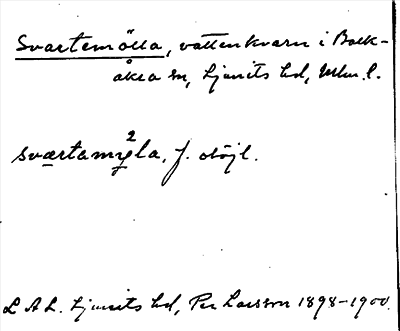 Svartemölla, vattenkvarn i Balk-
åkra sn, Ljunits hd, Mlm. l.
sværtamy²la, f. oböjl.
L A L. Ljunits hd, Per Larsson 1898-1900.